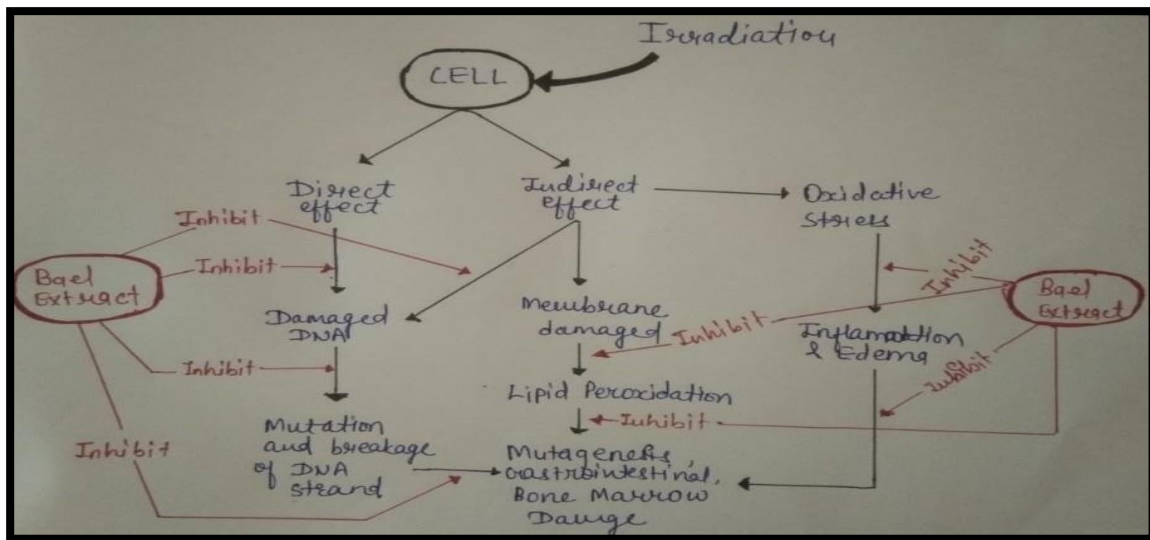 Irradiation
CELL
Direct
effect
Indirect
effect
Oxidative
Stress
Inhibit
Inhibit
Inhibit
Bael
Extract
Bael
Extract
Damaged
DNA
Membrane
damaged
Inhibit
Inflamation
& Edema
Inhibit
Inhibit
Lipid Peroxidation
Inhibit
Inhibit
Mutation
and breakage
of DNA
strand
Mutagenesis,
Gastrointestinal,
Bone Marrow
Damge